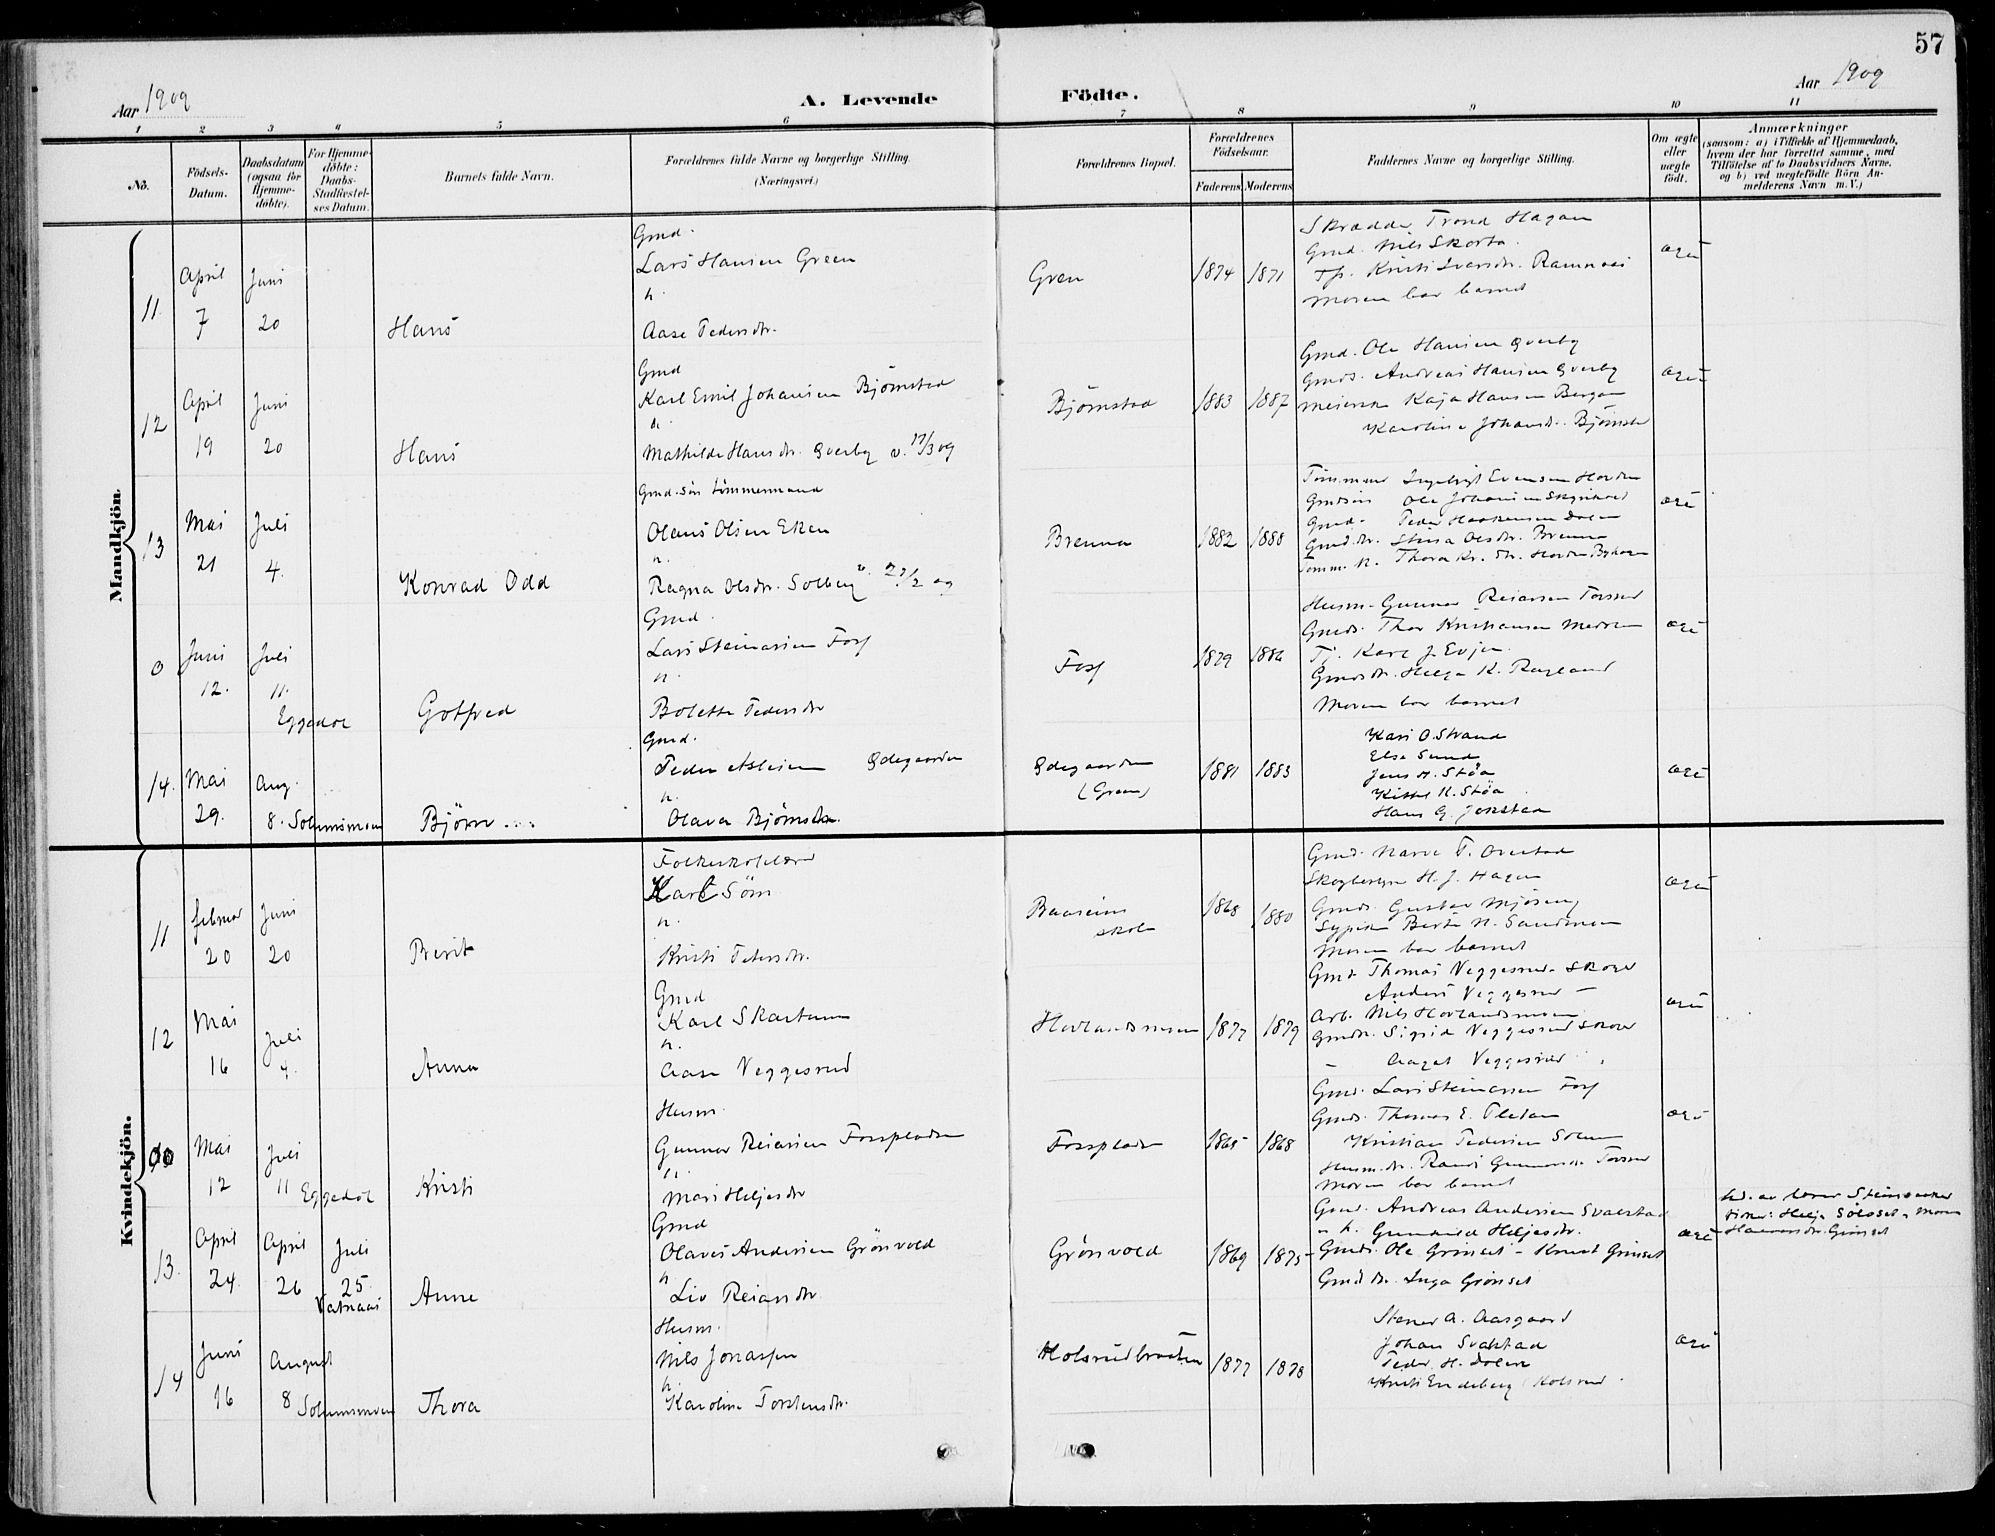 57
Aar 1909
A. Levende Födte.
Aar 1909
1 2 3 4 5 6 7 8 9 10 11
No.
Födsels-Datum.
Daabsdatum (ogsaa for Hjemme-döbte).
For Hjemme-döbte: Daabs-Stadfæstel-ses Datum.
Barnets fulde Navn.
Forældrenes fulde Navne og borgerlige Stilling.
(Næringsvei.)
Forældrenes Bopæl.
Forældrenes Födselsaar.
Faderens. Moderens.
Faddernes Navne og borgerlige Stilling.
Om ægte eller uægte födt.
Anmærkninger
(saasom: a) i Tilfælde af Hjemmedaab,
hvem der har forrettet samme, med
Tilföielse af to Daabsvidners Navne,
og b) ved uægtefödte Börn An-
melderens Navn m. V.)
Mandkjön.
11.
April
7
Juni
20
Hans
Gmd.
Lars Hansen Green
h.
Aase Pedersdtr.
Gren
1874
1871
Skrædder Trond Hagan
Gmd. Nils Skarta
Tj. Kristi Iversdr. Ramnaas
Moren bar barnet
12
April
19
Juni
20
Hans
Gmd
Karl Emil Johansen Björnstad
h.
Mathilde Hansdtr. Qverby v. 17/3 09
Björnstad
1883
1887
Gmd. Ole Hansen Qverby
Gmds. Andreas Hansen Qverby
Meierske Kaja Hansen Bergan
Karoline Johansdr. Björnstad
13
Mai
21
Juli
4.
Konrad Odd
Gmd. sön tömmermand
Olaus Olsen Eken
h.
Ragna Olsdtr. Solberg v. 27/2 09
Brenna
1882
1888
Ingebrigt Evensen
Ole Johansen
Gmd. Peder Haakensen Dolen
Gmd. dr. Stina Olsdr. Brenna
Tömm. k. Thora Kr. dr.
0
Juni
12.
Juli
11.
Eggedal
Gotfred
Gmd.
Lars Steinarsen Foss
h.
Bolette Pedersdtr
Foss
1879
1886
Husm. Gunnar Reiarsen
Gmds. Thor Kristiansen
Tj. Kari J. Evjen
Gmdsdtr. Helga K. Rugland
Moren bar barnet
14.
Mai
29.
Aug.
8. Solumsmoen
Björn
Gmd.
Peder Aslesen Ödegaarden
h.
Olava Björnsdtr.
Ödegaarden
(Green)
1881
1883
Kari O. Strand
Else Sund
Jens H. Stöa
Kittel H. Stöa
Hans G. Jokstad
Kvindekjön.
11
Februar
20
Juni
20
Berit
Folkeskolelærer
Karl Söm
h.
Kristi Petersdtr.
Baaseim
skole
1868
1880
Gmd. Narve T. Overstad
H. J. Hagen
Gmds. Gustav Mjösung
Sypike Berte N. Sandmoen
Moren bar barnet
12
Mai
16
Juli
4.
Anna
Gmd
Karl Skartum
h.
Aase Veggesrud
Hovlandsmoen
1877
1879
Gmd. Thomas Veggesrud
Anders Veggesrud
Arb. Nils Hovlandsmoen
Gmdtr. Sigrid Veggesrud
Aaget Veggesrud
Mai
12
Juli
11 Eggedal
Kristi
Husm.
Gunnar Reiarsen Fosspladsen
h.
Mari Helgesdtr
Fosspladsen
1865
1868
Gmd. Lars Steinarsen Foss
Gmds. Thomas E. Pletan
Kristian Pedersen
Husm. dr. Randi Gunnarsdr.
Moren bar barnet
13.
April
24
April
26
Juli
25.
Vatnaas
Anne
Gmd
Olaves Andersen Grönvold
h.
Liv Reiarsdtr.
Grönvold
1869
1875
Gmd. Andreas Andersen Svalstad
h. Gunhild Helgesdr.
Gmds. Ole Grinset - Knut Grinset
Gmd dtr. Inga Grönset
hd. av lærer
14
Juni
16
August
8 Solumsmoen
Thora
Husm.
Nils Jonassen
h.
Karoline Torstensdtr.
Holsrudbraaten
1877
1878
Stener A. Aasgaard
Johan Svalstad
Peder H. Dolen
Kristi Holsrud